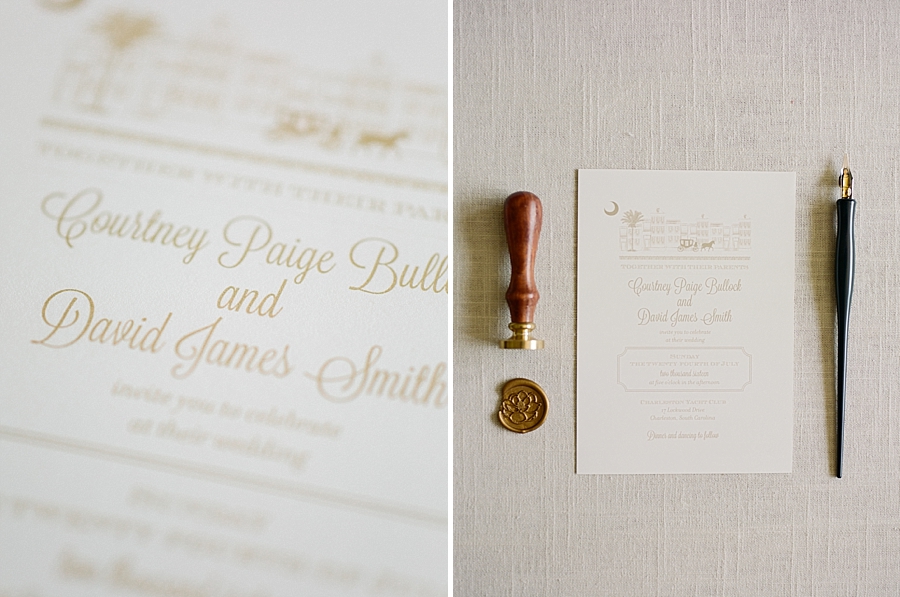 TOGETHER WITH THEIR PAR
Courtney Paige Bullo
and
David James Smith
invite you to celebrate
at their wedding
two thousand
TOGETHER WITH THEIR PARENTS
Courtney Paige Bullock
and
David James Smith
invite you to celebrate
at their wedding
THE TWENTY FOURTH OF JULY
two thousand sixteen
at five o'clock in the afternoon
17 Lockwood Drive
Charleston, South Carolina
Dinner and dancing to follow